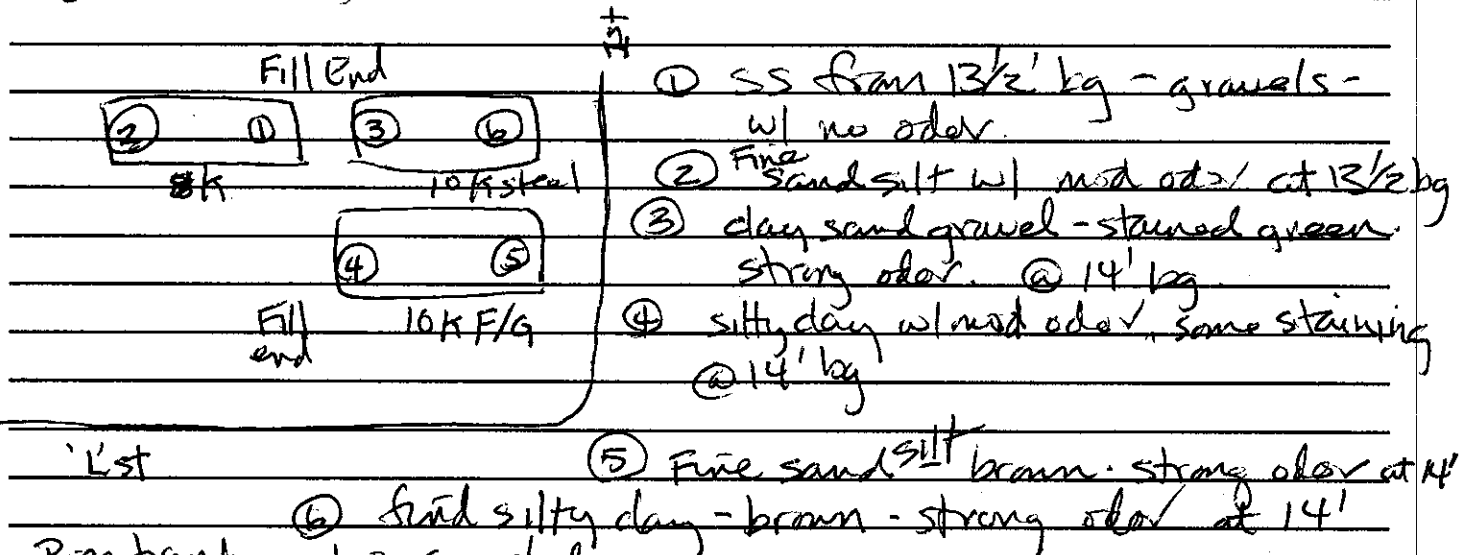 Fill End
② ① ③ ⑥
8K 10K steel
④ ⑤
Fill 10K F/G
end
① SS from 13½' bg - gravels -
w/ no odor.
② Fine sand silt w/ mod odor at 13½ bg
③ clay sand gravel - stained green.
strong odor. @ 14' bg
④ silty clay w/ mod odor, some staining
@ 14' bg
st
⑤ Fine sand silt brown. strong odor at 14'
⑥ find silty clay - brown - strong odor at 14'